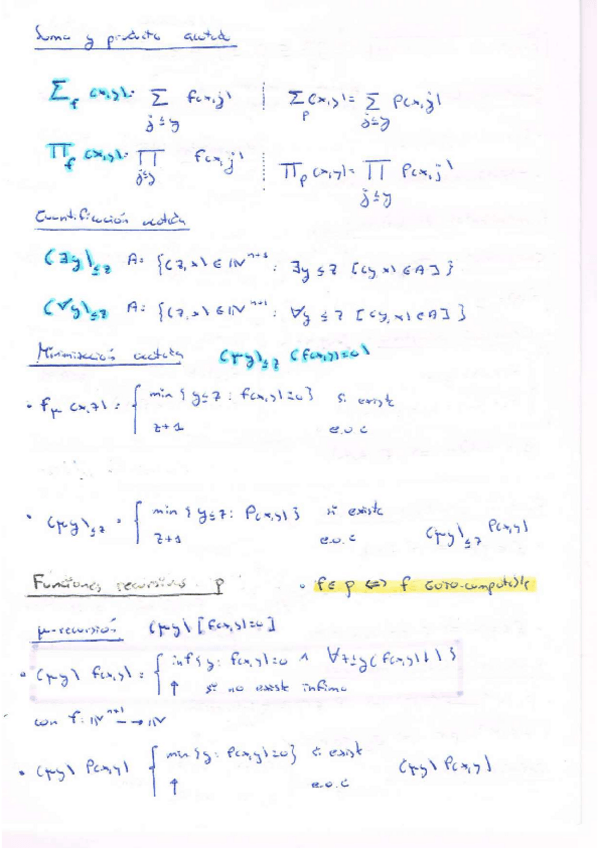 Suma y producto acotada
Σ_f (x,y) = Σ_{j≤y} f(x,j) | Σ_P (x,y) = Σ_{j≤y} P(x,j)
Π_f (x,y) = Π_{j≤y} f(x,j) | Π_P (x,y) = Π_{j≤y} P(x,j)
Cuantificación acotada
(∃y)_{≤z} A = {(z,x) ∈ ℕ^{n+1} : ∃y ≤ z [(y,x) ∈ A]}
(∀y)_{≤z} A = {(z,x) ∈ ℕ^{n+1} : ∀y ≤ z [(y,x) ∈ A]}
Minimización acotada (μy)_{≤z} (f(x,y)=0)
• f_μ (x,z) = { min {y≤z : f(x,y)=0} si existe
z+1 e.o.c
• (μy)_{≤z} = { min {y≤z : P(x,y)} si existe
z+1 e.o.c (μy)_{≤z} P(x,y)
Funciones recursivas p • f∈p ⟺ f GOTO-computable
μ-recursión (μy) [f(x,y)=0]
• (μy) f(x,y) = { inf {y : f(x,y)=0 ∧ ∀z≤y (f(x,z)↓)}
↑ si no existe ínfimo
con f: ℕ^{n+1} → ℕ
• (μy) P(x,y) { min {y : P(x,y)=0} si existe
↑ e.o.c (μy) P(x,y)